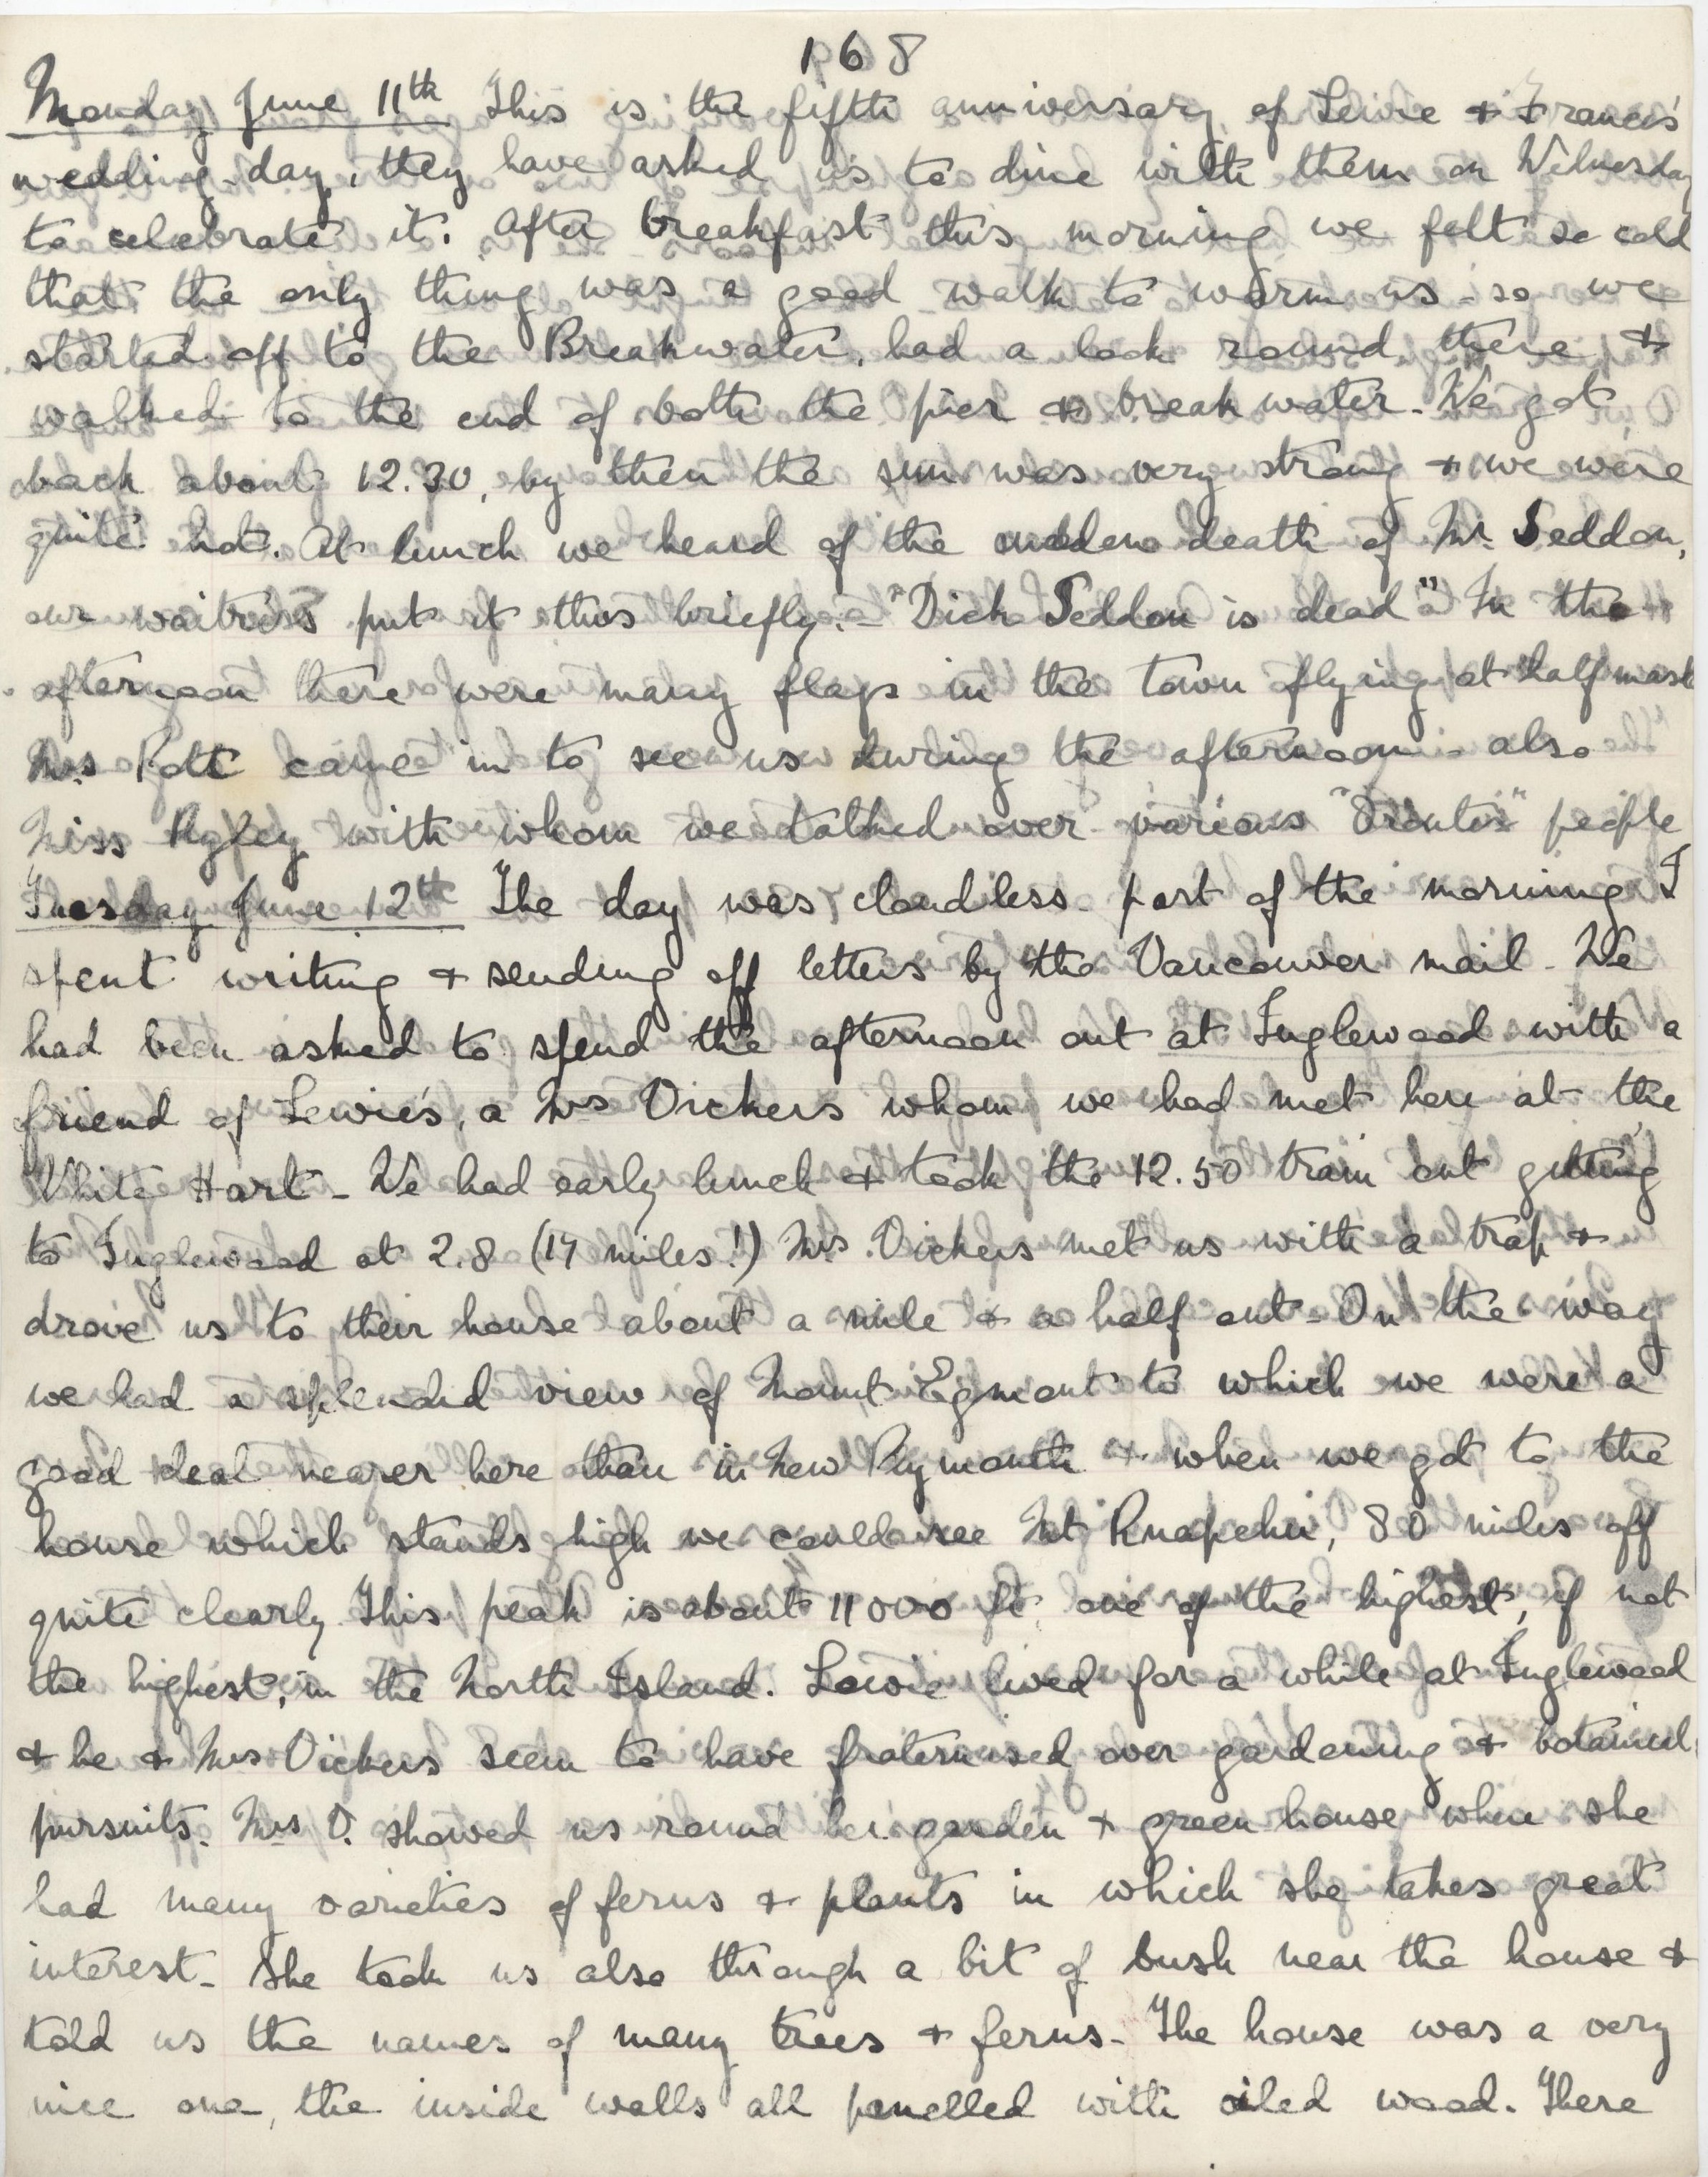 168
Monday June 11th This is the fifth anniversary of Lewie & Francis'
wedding-day, they have asked us to dine with them on Wednesday
to celebrate it. After breakfast this morning we felt so cold
that the only thing was a good walk to warm us - so we
started off to the Breakwater, had a look round there &
walked to the end of both the pier & breakwater. We got
back about 12.30, by then the sun was very strong & we were
quite hot. At lunch we heard of the sudden death of Mr. Seddon,
our waitress put it thus briefly:- "Dick Seddon is dead" In the
afternoon there were many flags in the town flying at half mast
Mrs Pott came in to see us during the afternoon - also
Miss with whom we talked over various "Orontes" people
Tuesday June 12th The day was cloudless. part of the morning I
spent writing & sending off letters by the Vancouver mail - We
had been asked to spend the afternoon out at Inglewood with a
friend of Lewie's, a Mrs Vickers whom we had met here at the
White Hart - We had early lunch & took the 12.50 train out getting
to Inglewood at 2.8 (17 miles!) Mrs. Vickers met us with a trap &
drove us to their house about a mile & a half out - On the way
we had a splendid view of Mount Egmont to which we were a
good deal nearer here than in New Plymouth & when we got to the
house which stands high we could see Mt Ruapehu, 80 miles off
quite clearly. This peak is about 11000 ft, one of the highest, if not
the highest, in the North Island. Lewie lived for a while at Inglewood
& he & Mrs Vickers seem to have fraternised over gardening & botanical
pursuits. Mrs V. showed us round her garden & green house where she
had many varieties of ferns & plants in which she takes great
interest - She took us also through a bit of bush near the house &
told us the names of many trees & ferns - The house was a very
nice one, the inside walls all panelled with oiled wood. There